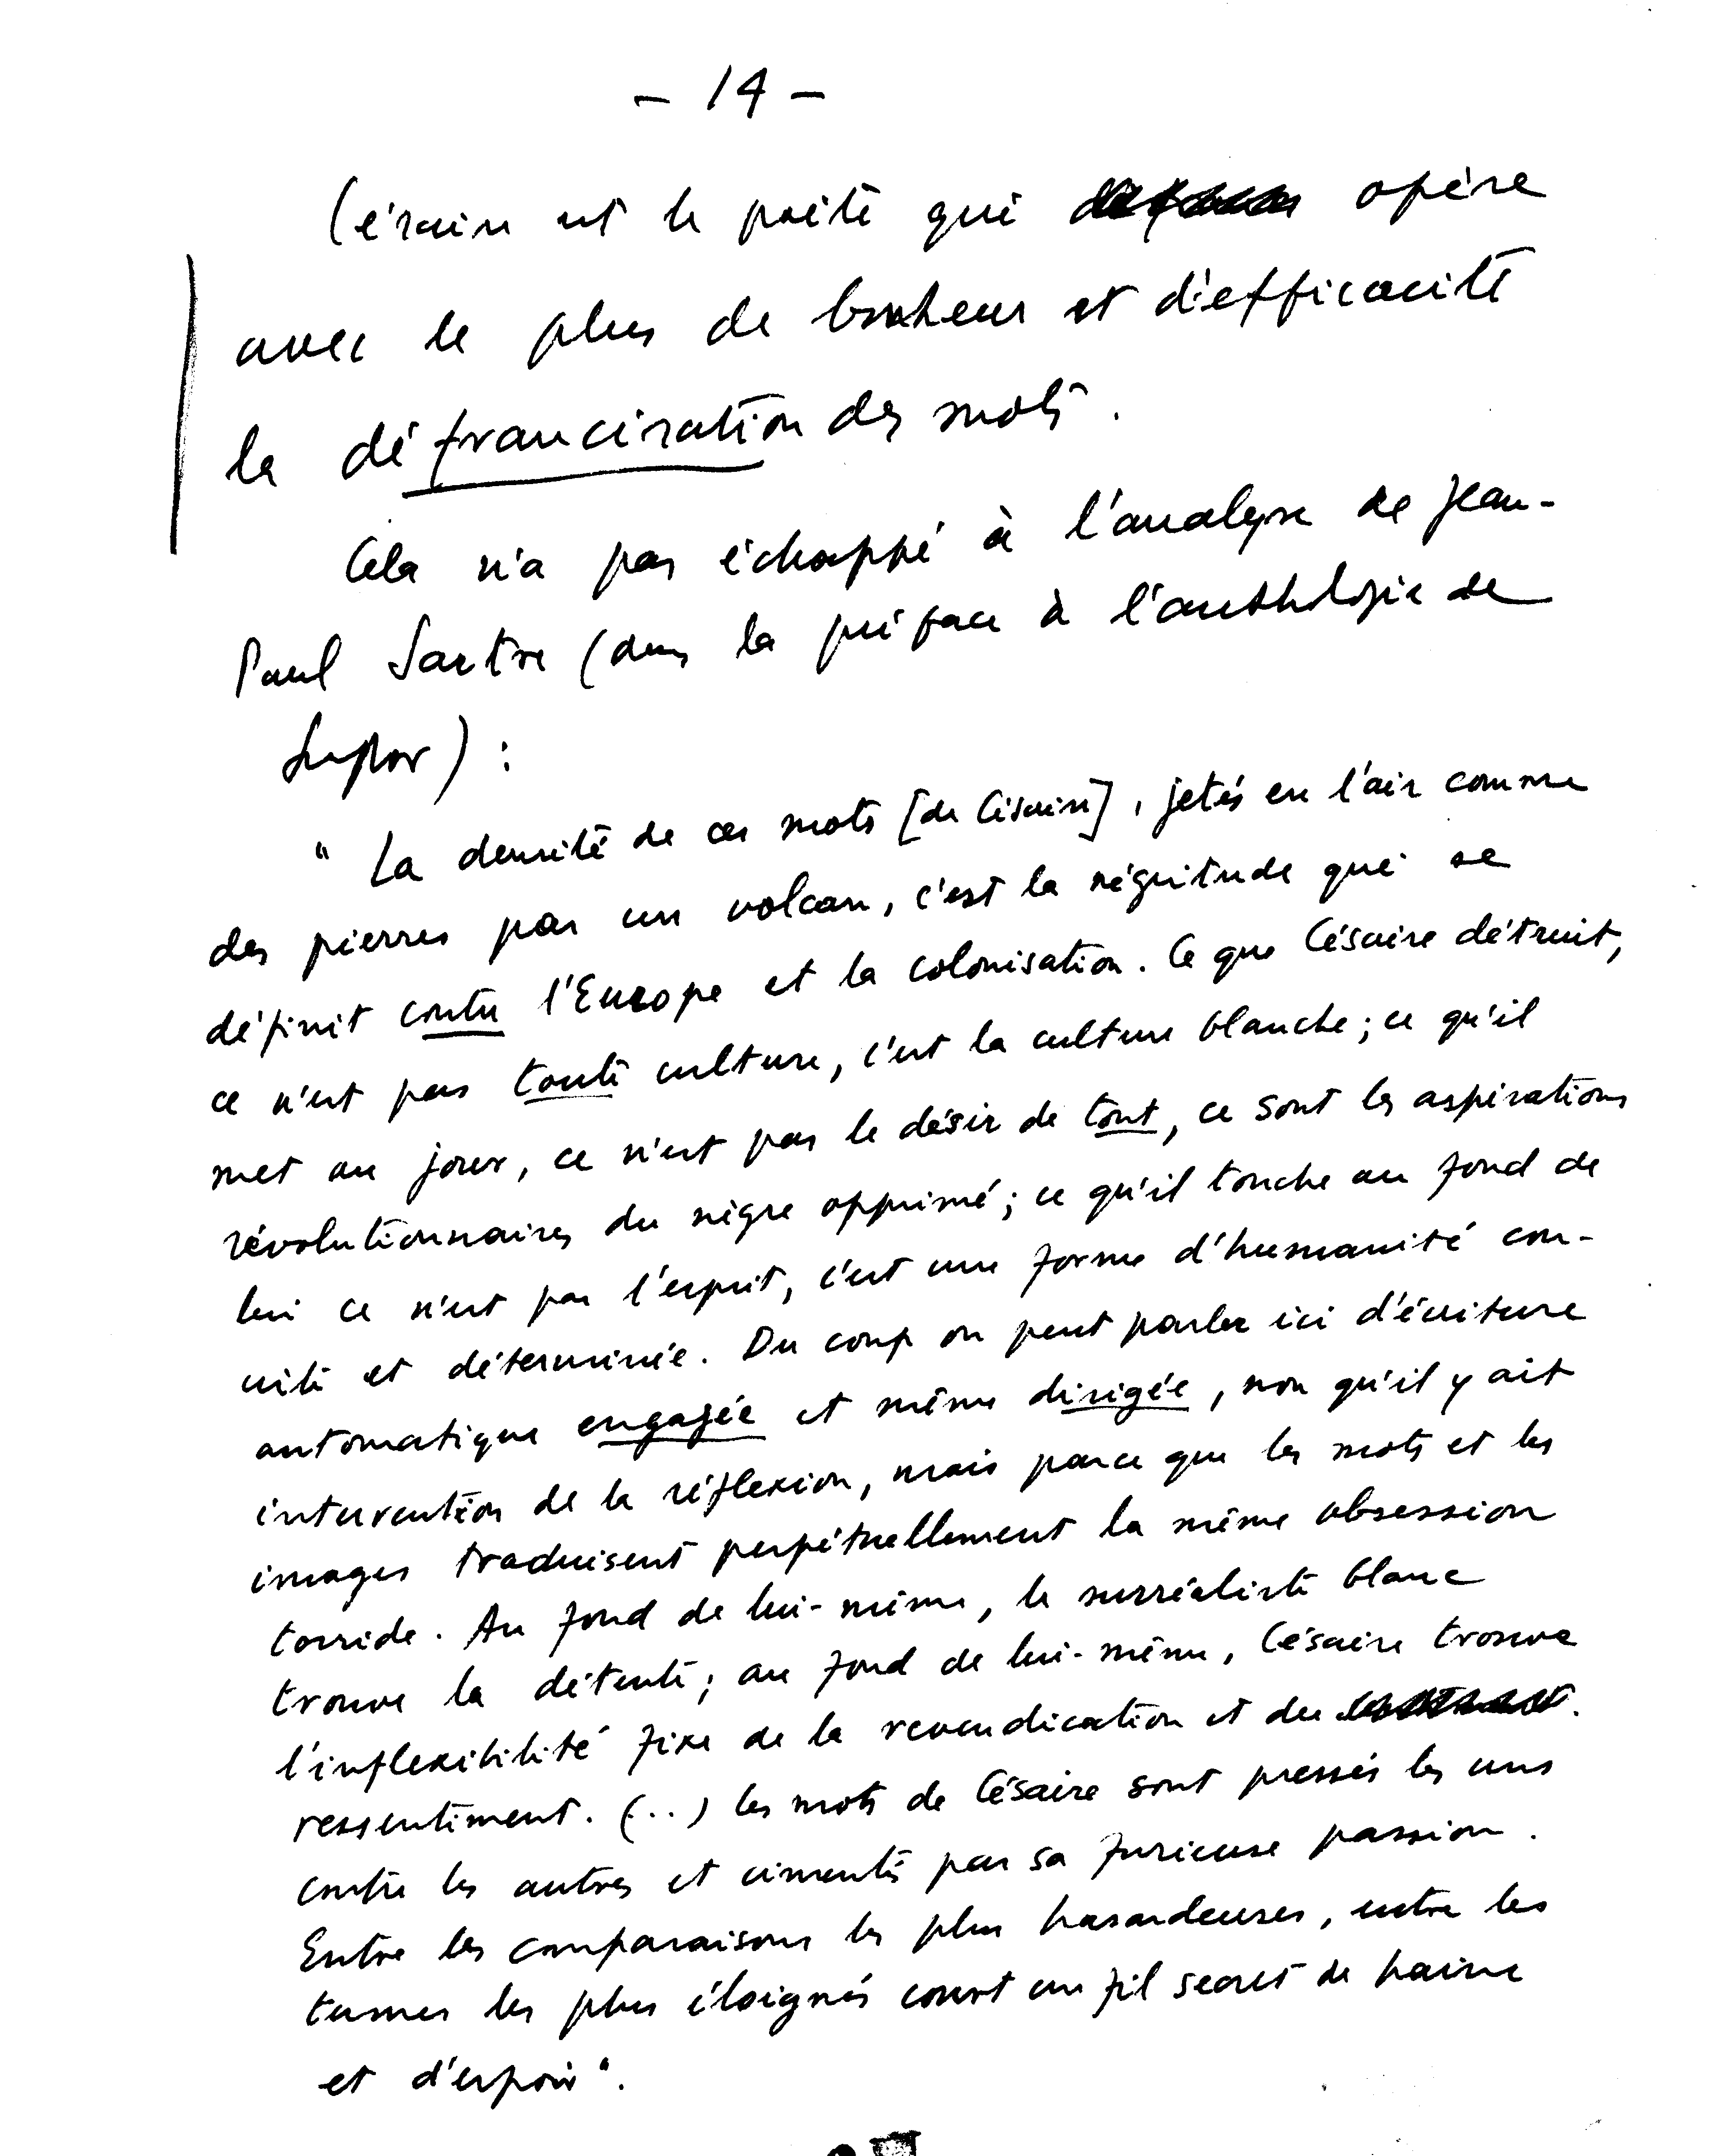 - 14 -
Césaire est le poète qui opère
avec le plus de bonheur et d'efficacité
la défrancisation des mots.
Cela n'a pas échappé à l'analyse de Jean-
Paul Sartre (dans la préface à l'anthologie de
Senghor) :
" La densité de ces mots [de Césaire], jetés en l'air comme
des pierres par un volcan, c'est la négritude qui se
définit contre l'Europe et la colonisation. Ce que Césaire détruit,
ce n'est pas toute culture, c'est la culture blanche ; ce qu'il
met au jour, ce n'est pas le désir de tout, ce sont les aspirations
révolutionnaires du nègre opprimé ; ce qu'il touche au fond de
lui ce n'est pas l'esprit, c'est une forme d'humanité con-
crète et déterminée. Du coup on peut parler ici d'écriture
automatique engagée et même dirigée, non qu'il y ait
intervention de la réflexion, mais parce que les mots et les
images traduisent perpétuellement la même obsession
torride. Au fond de lui-même, le surréaliste blanc
trouve la détente ; au fond de lui-même, Césaire trouve
l'inflexibilité fixe de la revendication et du
ressentiment. (..) les mots de Césaire sont pressés les uns
contre les autres et cimentés par sa furieuse passion.
Entre les comparaisons les plus hasardeuses, entre les
termes les plus éloignés court un fil secret de haine
et d'espoir ".